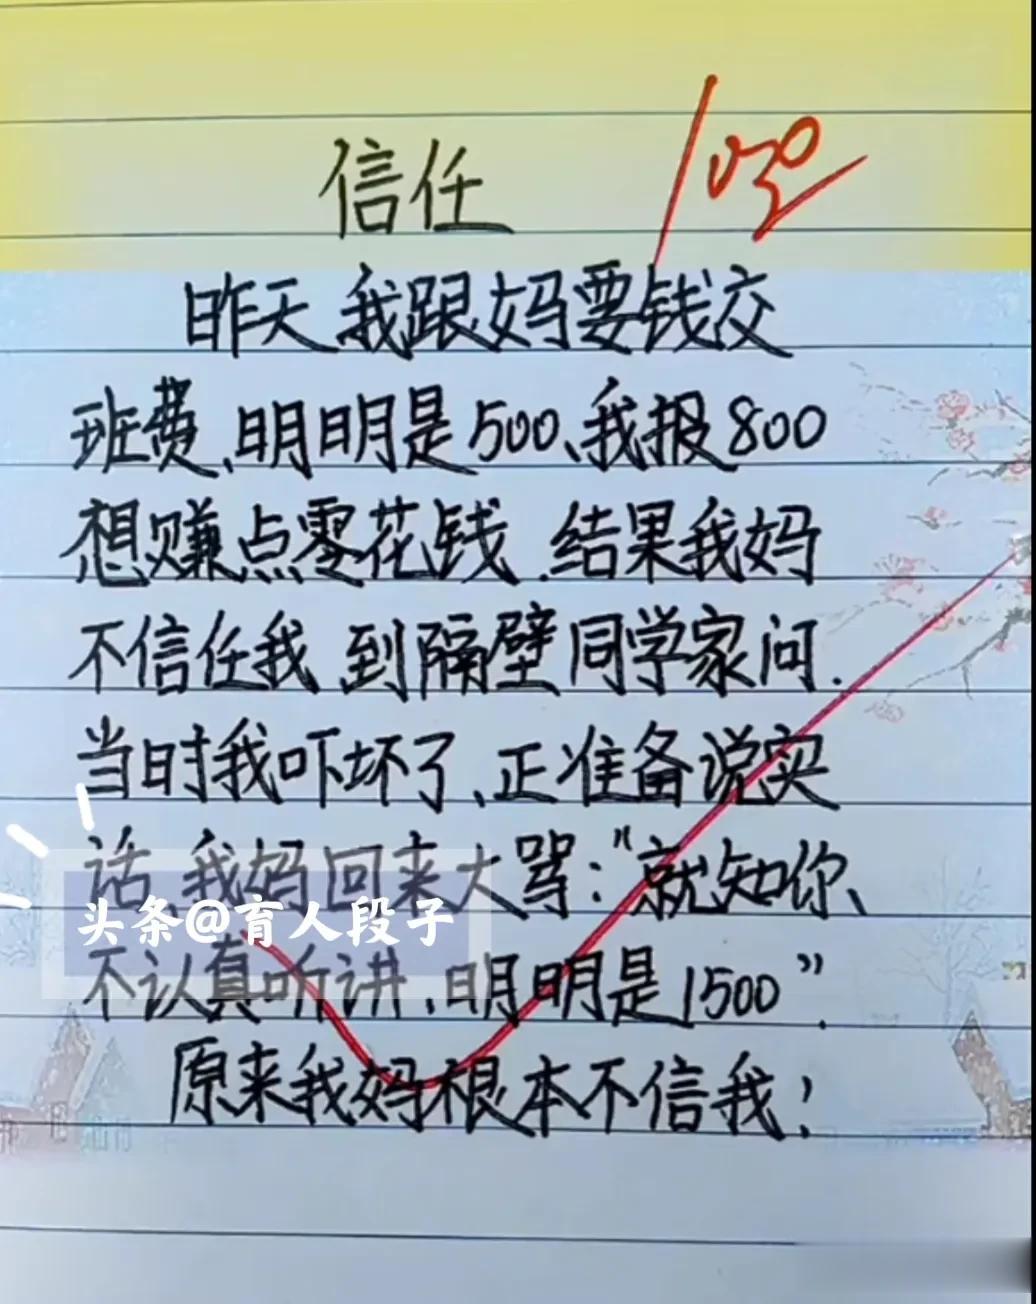 信任
昨天我跟妈要钱交
班费、明明是500、我报800
想赚点零花钱.结果我妈
不信任我 到隔壁同学家问.
当时我吓坏了、正准备说实
话、我妈回来大骂:“就知你、
头条@育人段子
不认真听讲、明明是1500”.
原来我妈根本不信我!